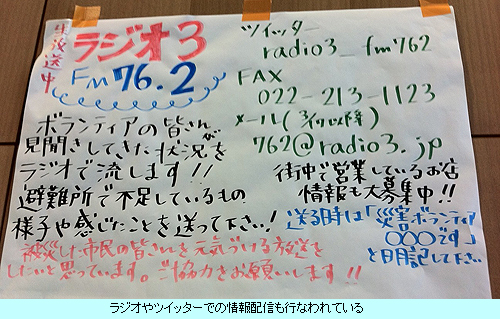 生放送中
ラジオ3
FM 76.2
ツイッター
radio3_fm762
FAX
022-213-1123
メール(3/11以降)
762@radio3.jp
ボランティアの皆さんが
見聞きしてきた状況を
ラジオで流します!!
避難所で不足しているもの
様子や感じたことを送って下さい!
街中で営業しているお店
情報も大募集中!!
送る時は「災害ボランティア
〇〇〇です」
と明記して下さい
被災した市民の皆さんを元気づける放送を
したいと思っています。ご協力をお願いします!!
ラジオやツイッターでの情報配信も行なわれている